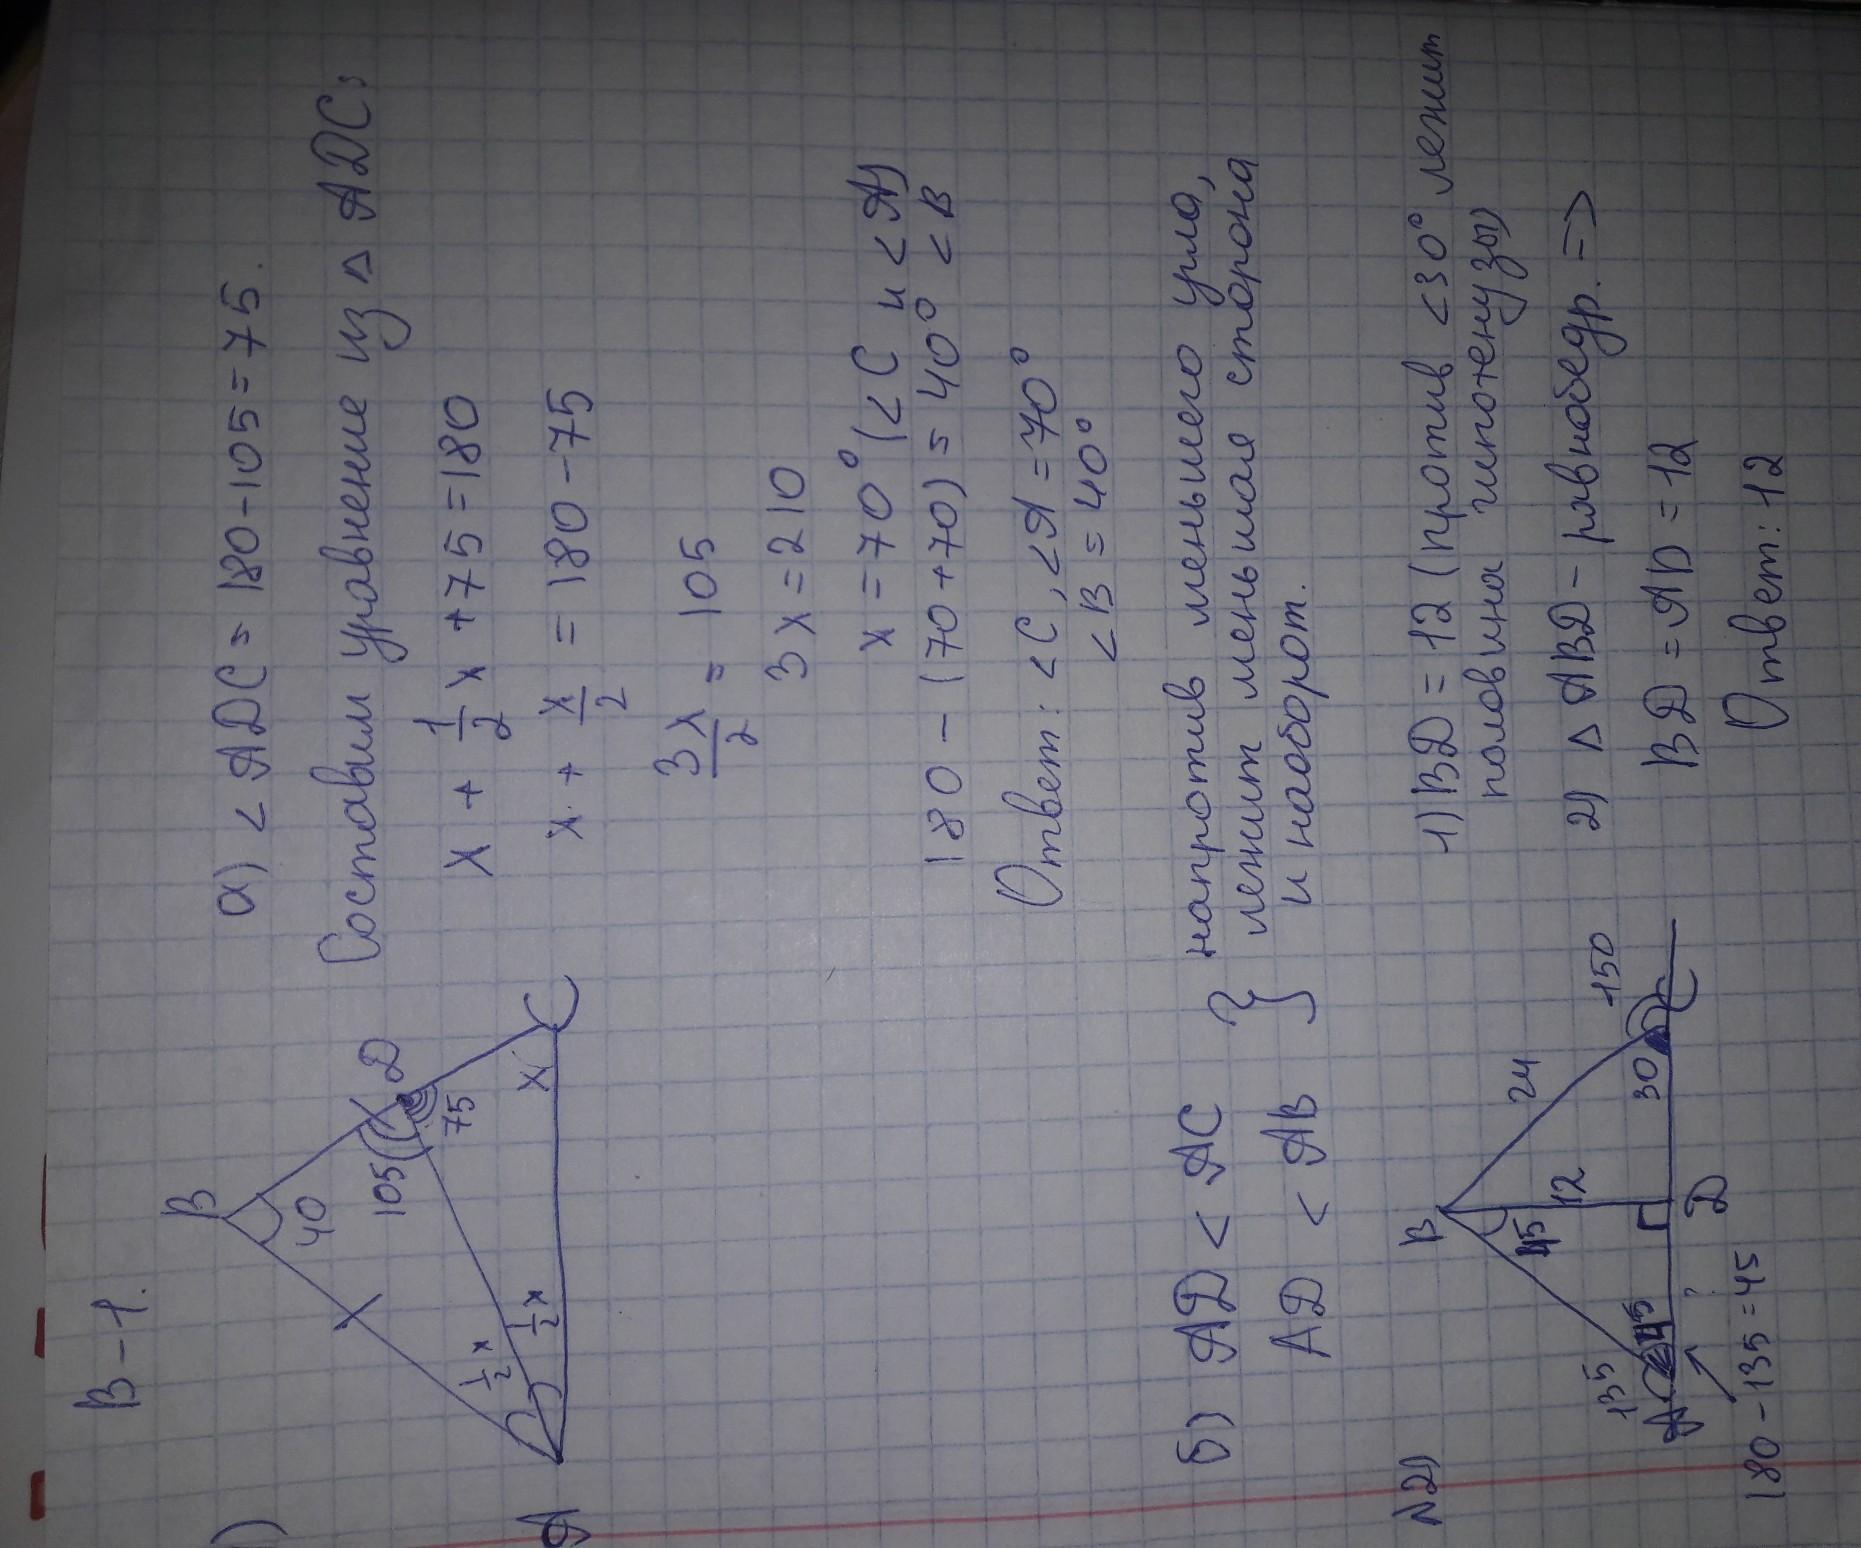 В-1.
)
В
40
105
D
75
1/2 x
1/2 x
x
A
C
а) < ADC = 180-105=75.
Составим уравнение из △ ADC:
x + 1/2 x + 75 = 180
x + x/2 = 180 - 75
3x/2 = 105
3x = 210
x = 70° (< C и < A)
180 - (70+70) = 40° < B
Ответ: < C, < A = 70°
< B = 40°
б) AD < AC
AD < AB
}
напротив меньшего угла,
лежит меньшая сторона
и наоборот.
N2)
B
45
12
24
135
45
30
150
A
?
D
C
180 - 135 = 45
1) BD = 12 (против <30° лежит
половина гипотенузы)
2) △ ABD - равнобедр. =>
BD = AD = 12
Ответ: 12